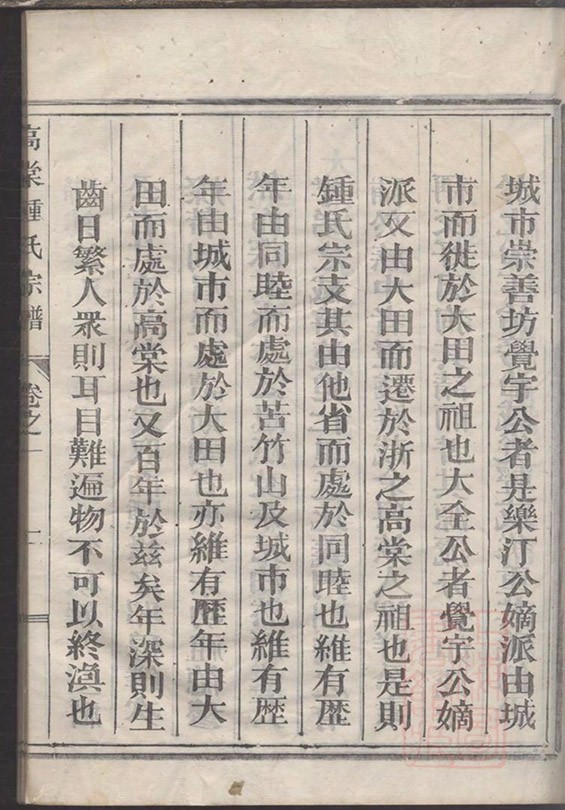 城市崇善坊覺宇公者是樂汀公嫡派由城
市而徙於大田之祖也大全公者覺宇公嫡
派又由大田而遷於浙之高棠之祖也是則
鍾氏宗支其由他省而處於同睦也維有歷
年由同睦而處於苦竹山及城市也維有歷
年由城市而處於大田也亦維有歷年由大
田而處於高棠也又百年於茲矣年深則生
齒日繁人眾則耳目難遍物不可以終渙也
高棠鍾氏宗譜 卷之一 二